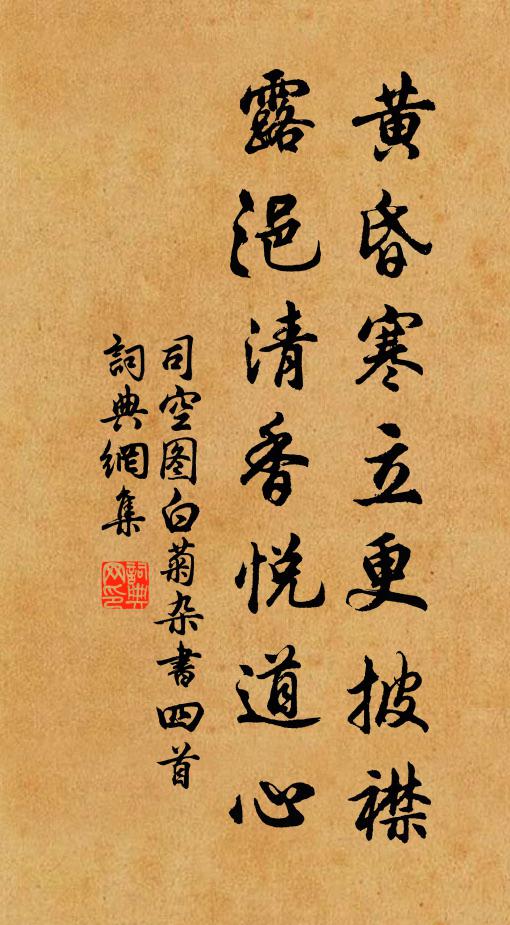 黄昏寒立更披襟
露浥清香悦道心
司空图白菊杂書四首
詞典網集
詞典网印